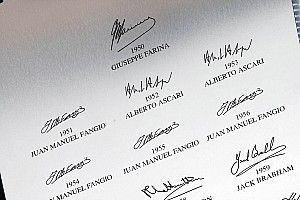 1950
GIUSEPPE FARINA
1953
ALBERTO ASCARI
1952
ALBERTO ASCARI
1951
JUAN MANUEL FANGIO
1956
JUAN MANUEL FANGIO
1955
JUAN MANUEL FANGIO
1954
JUAN MANUEL FANGIO
1959
JACK BRABHAM